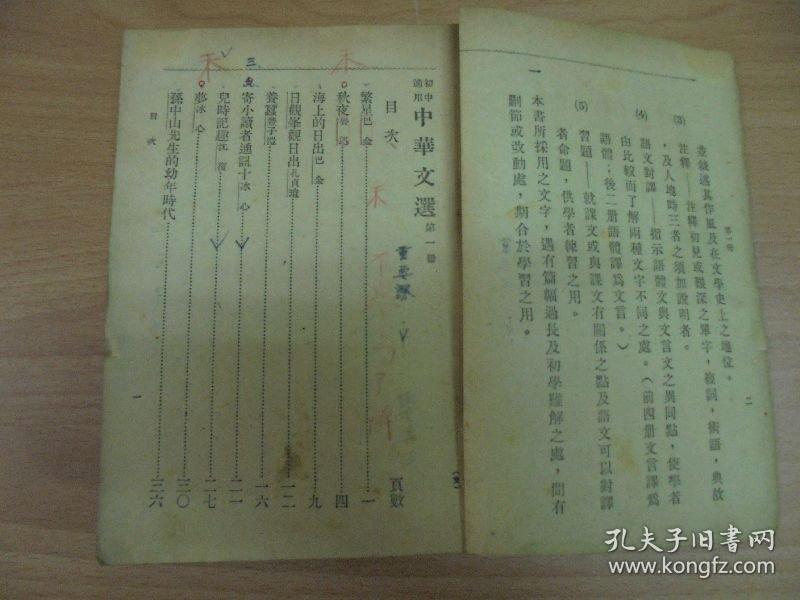 二
第一冊
並敍述其作風及在文學史上之地位。
(3) 注釋——注釋初見或艱深之單字，複詞，術語，典故
，及人地時三者之須加說明者。
(4) 語文對譯——指示語體文與文言文之異同點，使學者
由比較而了解兩種文字不同之處。（前四册文言譯爲
語體；後二册語體譯爲文言。）
(5) 習題——就課文或與課文有關係之點及語文可以對譯
者命題，供學者練習之用。
本書所採用之文字，遇有篇幅過長及初學難解之處，間有
刪節或改動處，期合於學習之用。
一
初中適用 中華文選 第一冊
目次 頁數
繁星 巴金 一
秋夜 四
海上的日出 巴金 九
日觀峯觀日出 孔貞瑄 一二
養蠶 豐子愷 一六
寄小讀者通訊十 冰心 二一
兒時記趣 沈復 二七
夢 冰心 三〇
孫中山先生的幼年時代 三六
目次
一
重要課
孔夫子旧书网
www.kongfz.com